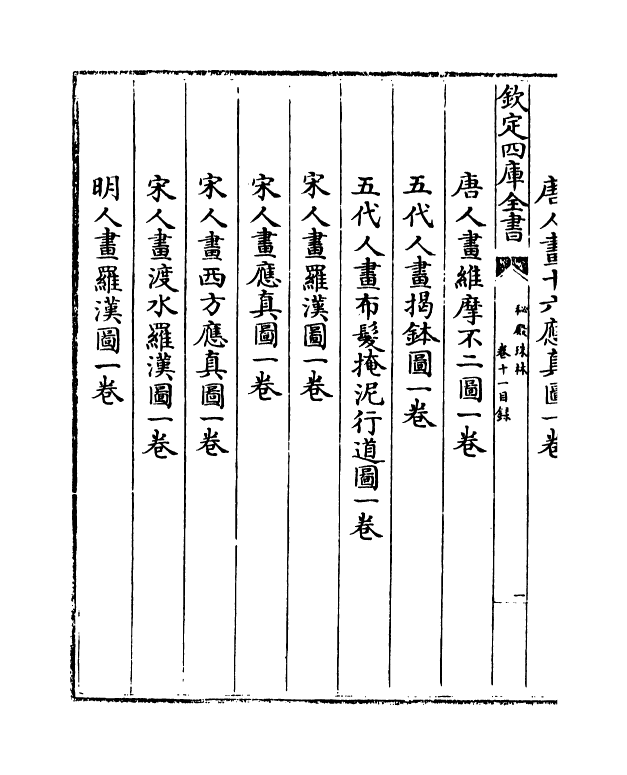 唐人畫十六應真圖一卷
欽定四庫全書
秘殿珠林
卷十一目錄
一
唐人畫維摩不二圖一卷
五代人畫揭鉢圖一卷
五代人畫布髮掩泥行道圖一卷
宋人畫羅漢圖一卷
宋人畫應真圖一卷
宋人畫西方應真圖一卷
宋人畫渡水羅漢圖一卷
明人畫羅漢圖一卷